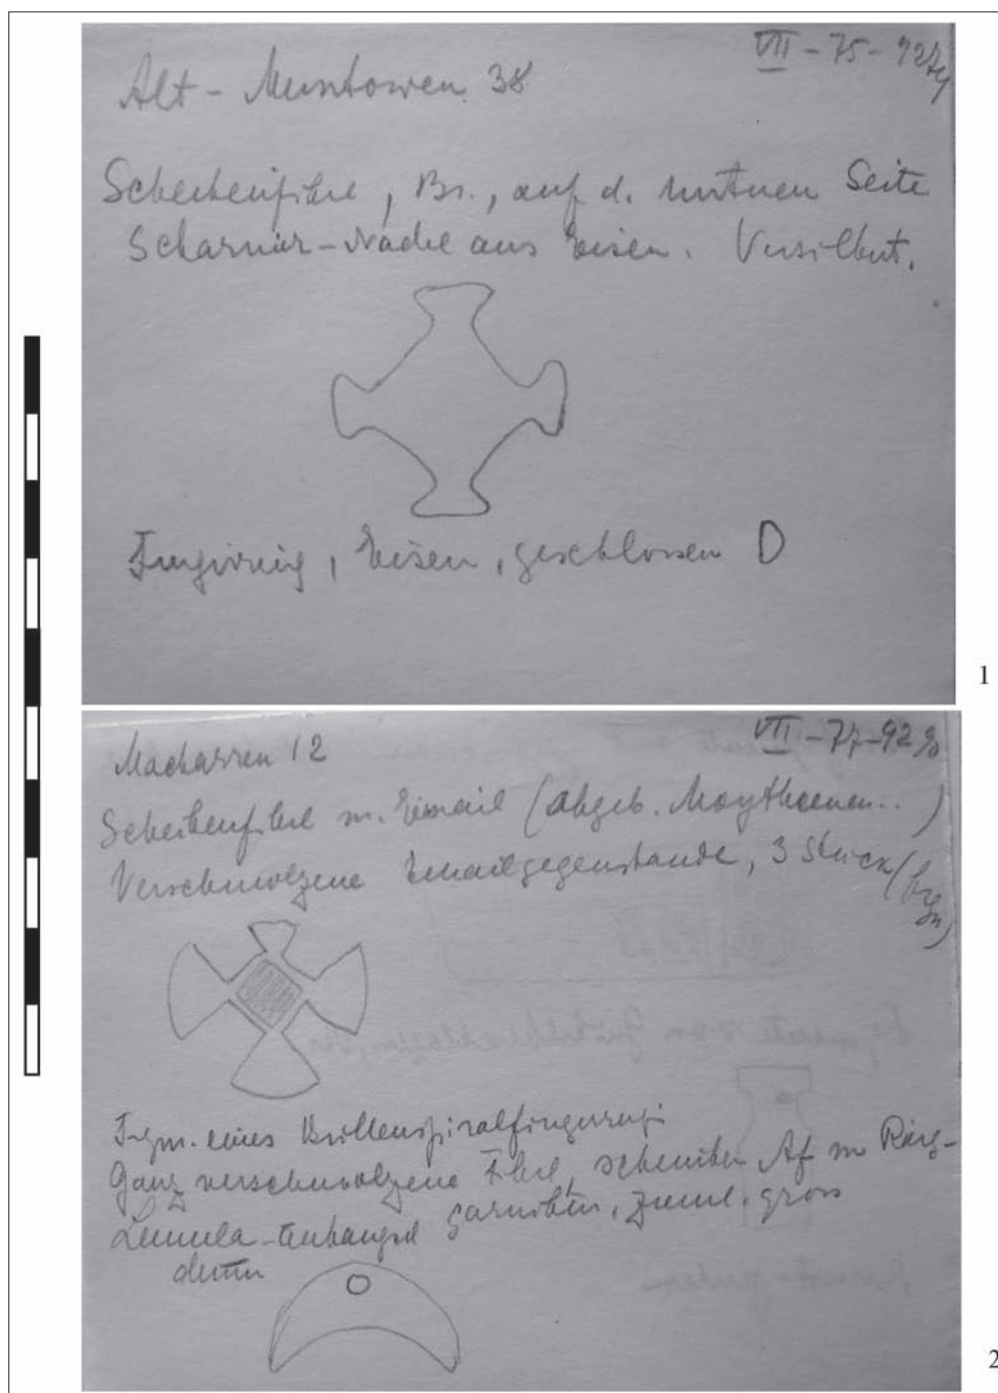 VII - 75 - 92
Alt - Muntowen 38
Scheibenfibel, Br., auf d. unteren Seite
Scharnier-Nadel aus Eisen. Versilbert.
Fingerring, Eisen, geschlossen D
1
VII - 77 - 92
Macharren 12
Scheibenfibel m. Email (abgeb. Moythienen..)
Verschmolzene Emailgegenstande, 3 Stück
Frgm. eines Brillenspiralfingerrings
Ganz verschmolzene Fibel, scheinbar Af m Ring-
Lunula-Anhängsel garnitur, zieml. gross
2